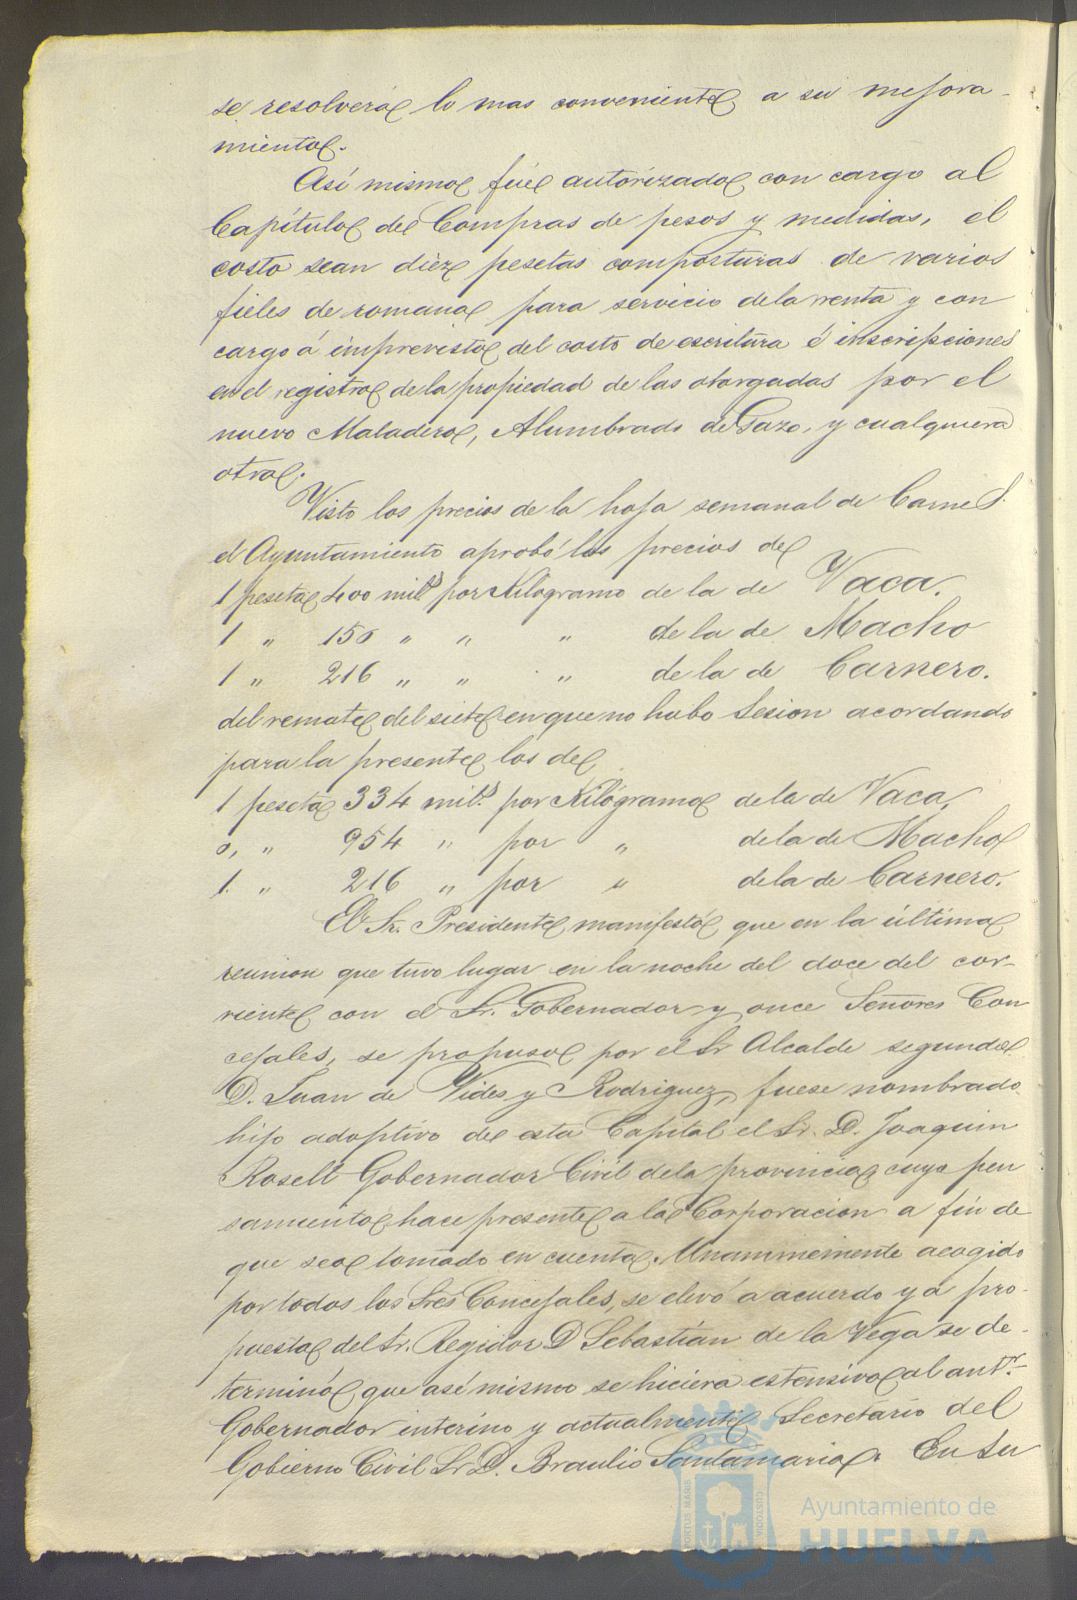 se resolverá lo mas conveniente a su mejora-
miento.
Así mismo fué autorizado con cargo al
Capítulo de Compras de pesos y medidas, el
costo sean diez pesetas composturas de varios
fieles de romana para servicio de la renta y con
cargo á imprevisto del costo de escritura é inscripciones
en el registro de la propiedad de las otorgadas por el
nuevo Matadero, Alumbrado de Gazo, y cualquiera
otra.
Visto los precios de la hoja semanal de Carnes
el Ayuntamiento aprobó los precios de
1 peseta 400 mils por Kilogramo de la de Vaca.
1 " 150 " " " de la de Macho
1 " 216 " " " de la de Carnero.
del remate del siete en que no hubo Sesion acordando
para la presente los de
1 peseta 334 mils. por Kilógramo de la de Vaca.
0, " 954 " por " de la de Macho
1. " 216 " por " de la de Carnero.
El Sr. Presidente manifestó que en la última
reunion que tuvo lugar en la noche del doce del cor-
riente con el Sr. Gobernador y once Señores Con
cejales, se propuso por el Sr Alcalde segundo
D. Juan de Vides y Rodriguez, fuese nombrado
hijo adoptivo de esta Capital el Sr. D. Joaquin
Rosell Gobernador Civil de la provincia cuyo pen
samiento hace presente a la Corporacion a fin de
que sea tomado en cuenta. Unanimemente acogido
por todos los Sres Concejales, se elevó a acuerdo y a pro-
puesta del Sr. Regidor D Sebastián de la Vega se de-
terminó que asi mismo se hiciera estensivo al antr.
Gobernador interino y actualmente Secretario del
Gobierno Civil Sr D. Braulio Santamaria. En su
PORTUS MARIS CUSTODIA
Ayuntamiento de
HUELVA